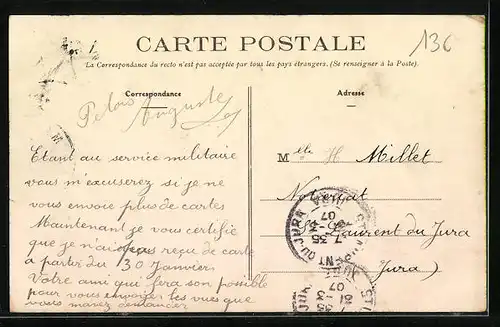 CARTE POSTALE
136
La Correspondance du recto n'est pas acceptée par tous les pays étrangers. (Se renseigner à la Poste).
Correspondance
Auguste
Etant au service militaire
vous m'excuserez si je ne
vous envoie plus de cartes
Maintenant je vous certifie
que je n'ai pas reçu de carte
a partir du 30 Janvier
Votre ami que fera son possible
pour vous envoyer les vues que
vous m'avez demander
Adresse
Mlle H Millet
Laurent du Jura
Jura)